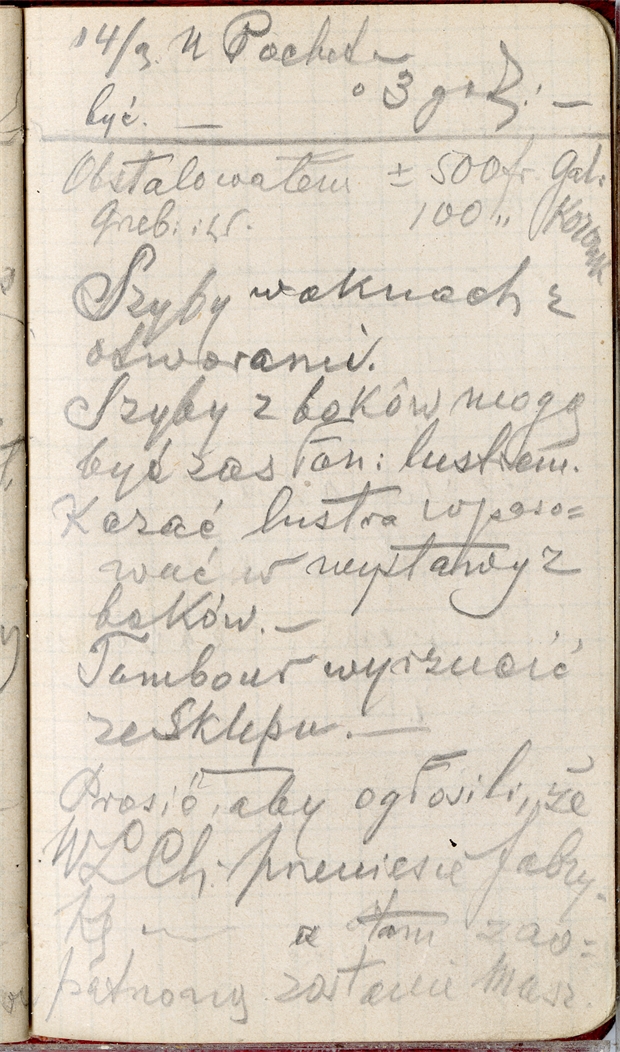 14/9. U Pochet
być. — o 3 godz: —
Obstalowałem ± 500 fr Gal:
Greb. i W. 100 „ Koronk
Szyby w oknach z
otworami.
Szyby z boków mogą
być zasłon: lustrem.
Kazać lustra wpaso=
wać w wystawy z
boków. —
Tambour wyrzucić
ze Sklepu. —
Prosić, aby ogłosili, że
WLCh. przeniesie fabry-
kę — a tam zao=
patrzony zostanie Masz.